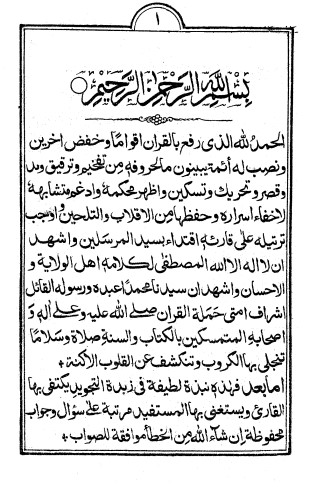 ١
بسم الله الرحمن الرحيم
الحمد لله الذى رفع بالقرآن اقواما وخفض اخرين
ونصب له أئمة يبينون ما لحروفه من تفخيم وترقيق ومد
وقصر وتحريك وتسكين واظهر محكمه وادغم متشابهه
لاخفاء اسراره وحفظها من الاقلاب والتلحين واوجب
ترتيله على قارئه اقتداء بسيد المرسلين واشهد
ان لا اله الا الله المصطفى لكلامه اهل الولاية و
الاحسان واشهد ان سيدنا محمدا عبده ورسوله القائل
اشراف امتى حملة القرآن صلى الله عليه وعلى أله و
اصحابه المتمسكين بالكتاب والسنة صلاة وسلاما
تنجلى بها الكروب وتنكشف عن القلوب الأكنة ٠
اما بعد فهذه نبذة لطيفة فى زبدة التجويد يكتفى بها
القارئ ويستغنى بها المستفيد مرتبة على سؤال وجواب
محفوظة ان شاء الله من الخطأ موافقة للصواب ٠